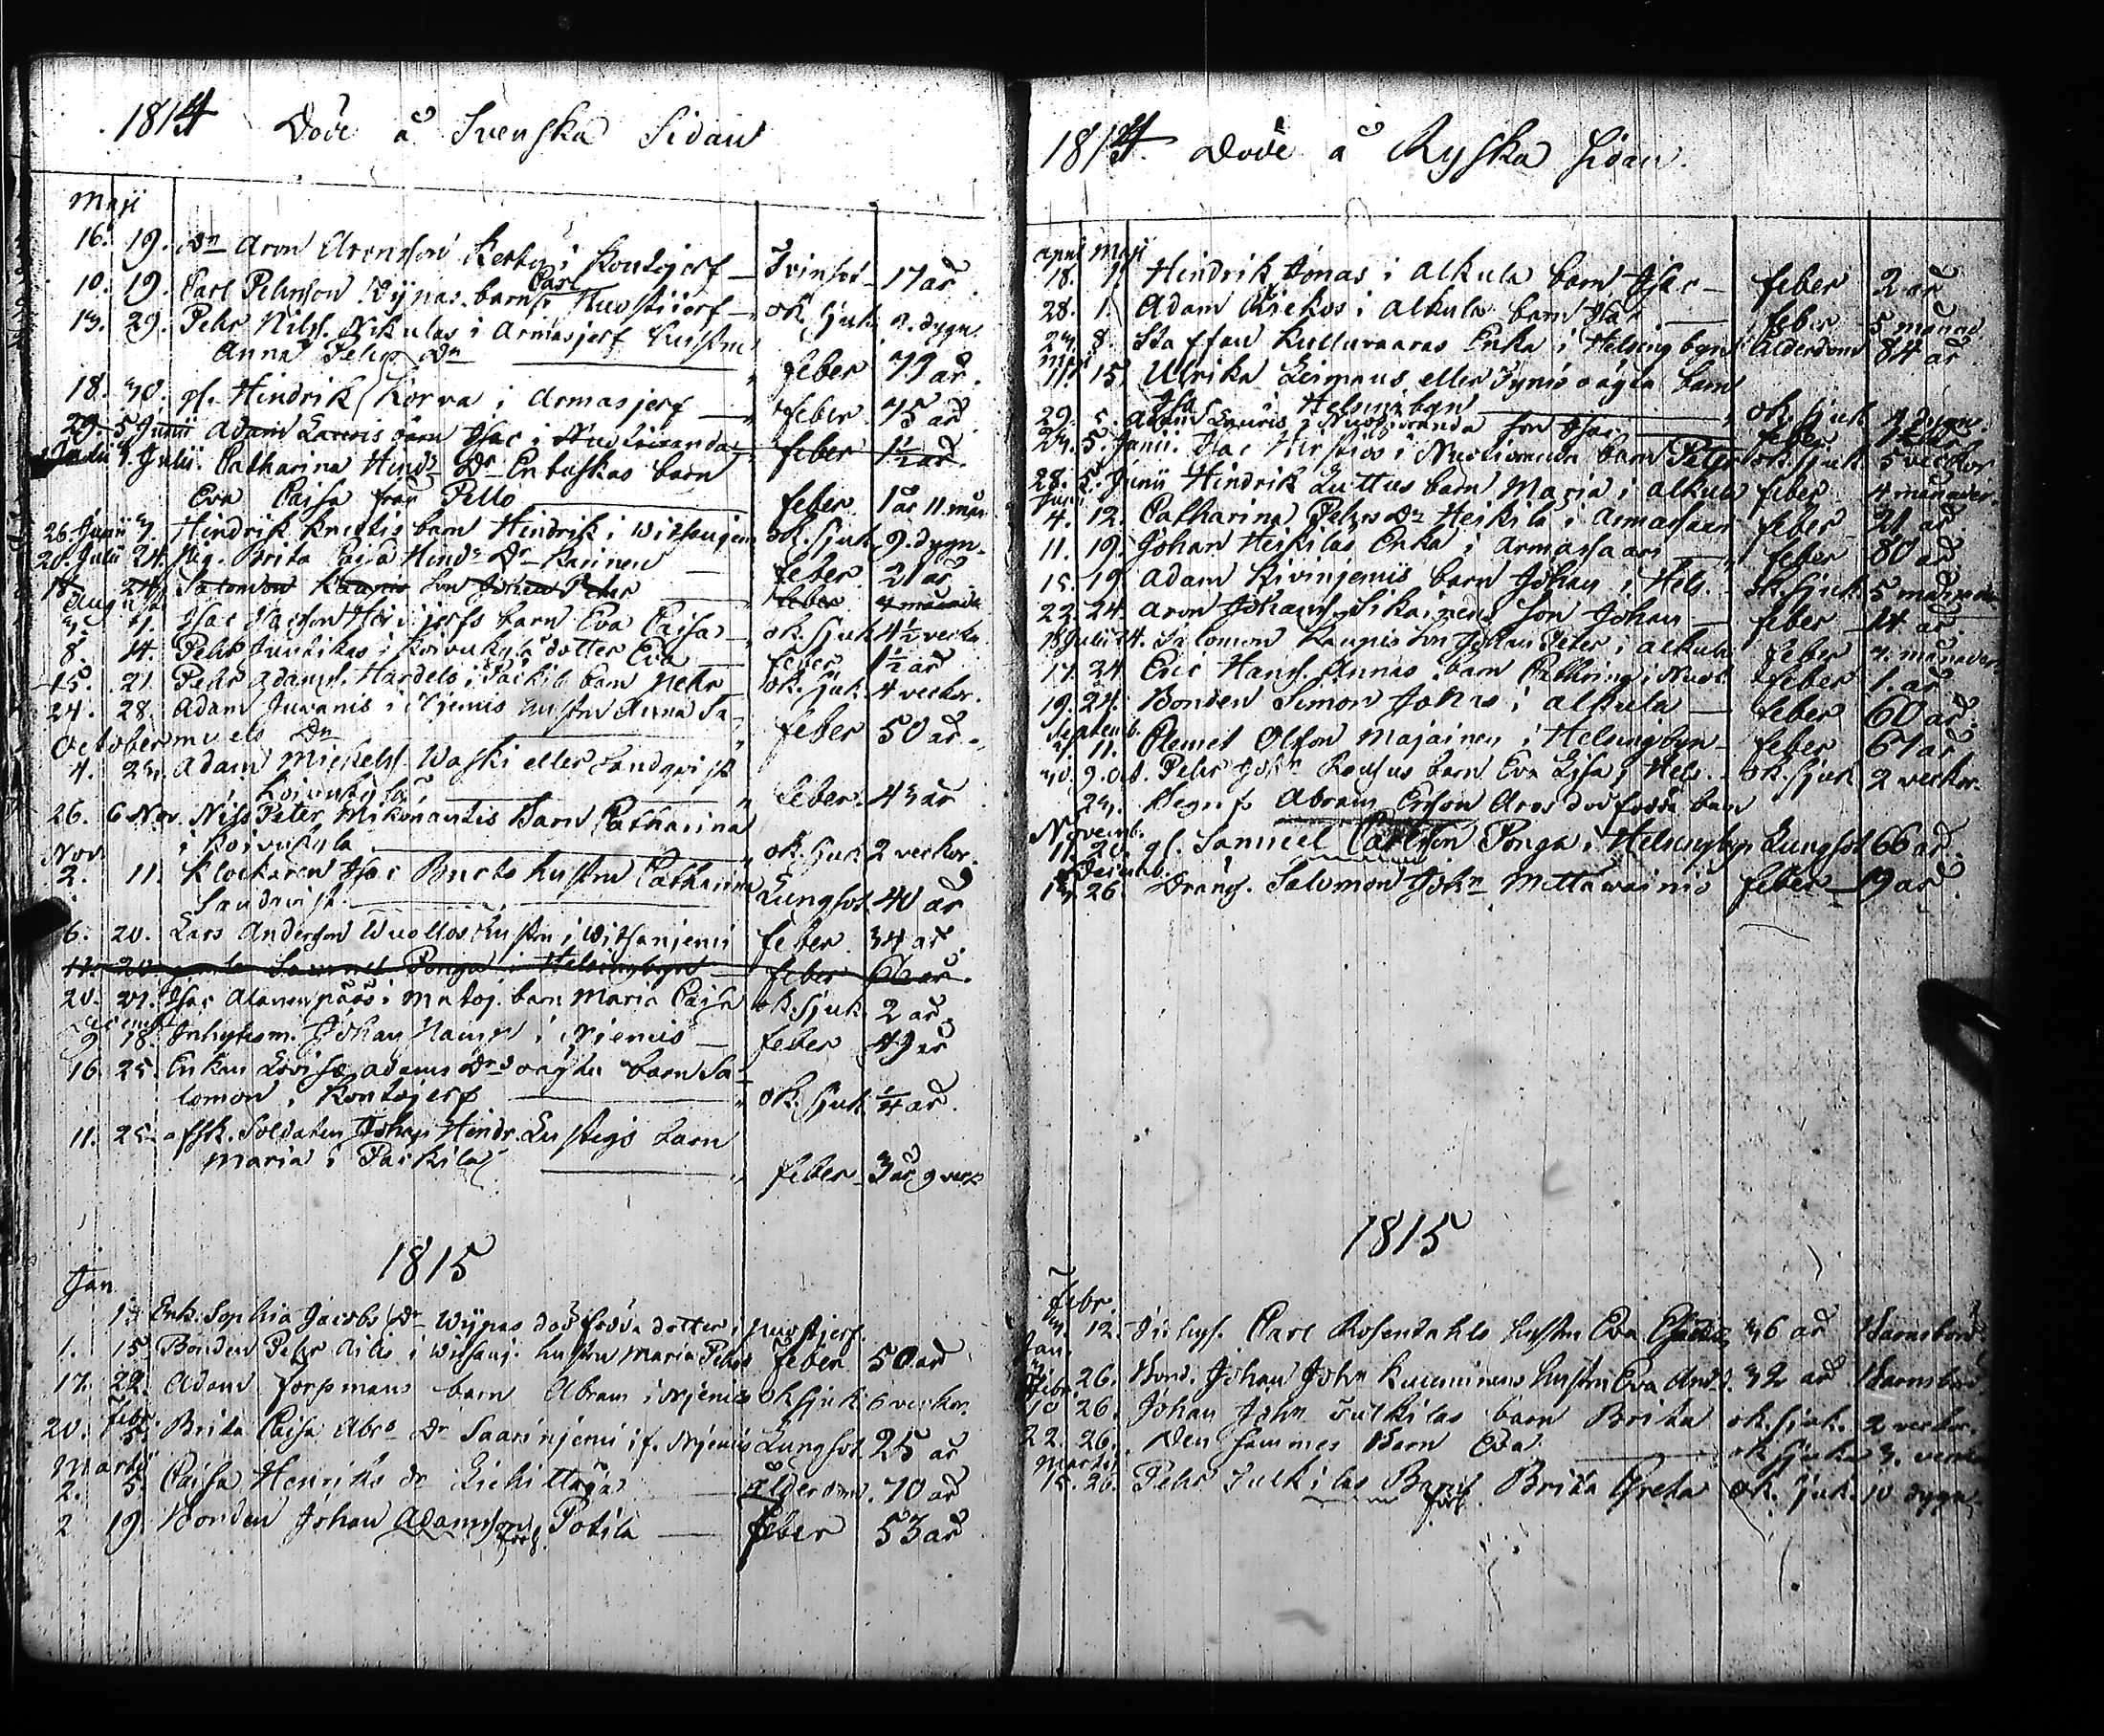 1814 Döde å Svenska Sidan
Maji
16. 19. Dn Aron Aronsson Kerty i Kontojerf — Tvinsot 17 år
10. 19. Carl Pehrsson Wynas barn Carl i Kuostijerf — ok. sjuk. 9. dygn.
13. 29. Pehr Nilss. Nikulas i Armasjerf hustru
Anna Pehrs Dr — feber 79 år.
18. 30. gl. Hindrik Korva i Armasjerf — feber 75 år.
29. 5 Junii Adam Lauris barn Isac i Nuotioranda feber 1½ år.
Julii. Catharina Hinds Dr Entuskas barn
Eva Caisa från Pello — feber 1 år 11. mån
26. Junii Hindrik Knuutis barn Hindrik i Witsaniemi ok. sjuk. 9. dygn.
20. Julii 24. Pig. Brita Caisa Hinds Dr Karinen — feber. 21 år
18. 24. Salomon Kaupis son Johan Peter — feber 4 månader
Augusti
Isac Isacson jerfs barn Eva Caisa — ok. sjuk 4½ veckor.
8. 14. Pehr Juntikas i Koivukylä dotter Eva — feber 1½ år
15. 21 Pehr Adamss. Hardelo i Päckilä barn Pehr — ok. sjuk. 4 veckor.
24. 28. Adam Juvanis i Niemis hustru Anna Sa-
muels Dr — feber 50 år.
October
4. 23. Adam Mickelss. Waski eller Landqvist
i Koivukylä — feber. 43 år
26. 6 Nov. Nils Peter Mikonantis Barn Catharina
i Koivukyla — ok. sjuk 2 veckor.
Nov.
2. 11. Klockaren Isac Buchts hustru Catharina
Sandqvist. — Lungsot. 40 år
6. 20. Lars Anderson Wuollos hustru i Witsaniemi feber. 34 år.
13. 20 gamla Samuel Ponga i Helsingbyn — feber 66 år.
20. 27. Isac Alanenpääs i Matoj. barn Maria Caisa ok. sjuk 2 år.
Decemb.
9 18. Inhysesm. Johan Hansss i Niemis — feber 49 år
16. 25. Enkan Lovisa Adams Drs oägta barn Sa-
lomon i Kontojerf — ok. sjuk. ¼ år.
11. 25. afsk. Soldaten Johan Hindr. Lustigs barn
Maria i Päckilä — feber 3 år 9 veck
1815
Jan
1. Enk. Sophia Jacobs Dr Wynas död födda dotter i Kuostjerf.
1. 15. Bonden Pehr Nilis i Witsanj. hustru Maria Pehrs feber 50 år
17. 22. Adam forsmans barn Abram i Niemis ok sjuk 6 veckor.
Febr.
20. 5. Brita Caisa Abrs Dr Saariniemi i f. Niemis Lungsot. 25 år
Martii
2. 5. Caisa Henriks dr Liehittäjä — ålderdom. 70 år
2 19. Bonden Johan Adamsson Potila — feber 53 år
1814. Döde å Ryska Sidan.
April Maji
18. 1. Hindrik Jonas i Alkula barn Isac — feber 2 år
28. 1. Adam Kiekos i Alkula barn Isac — feber 5 månad.
23. 8. Staffan Kulluvaaras Enka i Helsingbyn Ålderdom 84 år
Maji
11. 15. Ulrika Leimans eller Tynis oägta barn
Isac i Helsingbyn — ok. sjuk 4 dygn.
29. 5. Adam Lauris i Nuotioranda son Isac — feber 1½ år
23. 5. Junii. Isac Kirstiös i Nuotioranda barn Peter ok. sjuk 5 veckor
28. Junii Hindrik Luttus barn Maria i Alkula feber 4 månader.
Junii
4. 12. Catharina Pehrs Dr Heikilä i Armassaari feber 21 år
11. 19. Johan Heikilas Enka i Armassaari — feber 80 år
15. 19 Adam Kiviniemis barn Johan i Hels. ok. sjuk 5 månader
22. 24. Aron Johanss. Sikainens son Johan — feber 14 år.
18 Julii 24. Salomon Kaupis son Johan Peter i Alkula feber 4. månader
17. 24 Eric Hanss. Annas barn Cathrina i Nuot. feber 1. år
19. 24. Bonden Simon Johns i Alkula — feber 60 år.
Septemb.
11. Clemet Olsson Majainen i Helsingbyn — feber 67 år
30. 9. Oct. Pehr Johns Rousus barn Eva Lisa i Hels. ok. sjuk 2 veckor.
23. Abram Ersson Aros död födda barn
Novemb.
11. 20. gl. Samuel Carlsson Ponga i Helsingbyn Lungsot 66 år.
Decemb.
13 26. Dräng. Salomon Johns Mettawainio feber 19 år
1815
Febr.
3. 12. Carl Rosendahls hustru Eva 36 år Barnsbörd
Jan.
26. Bond. Johan Johns Kuuminens hustru Eva Ands. 32 år Barnsbörd
Febr.
10 26. Johan Johns Tulkilas barn Brita ok. sjuk. 2 veckor.
22. 26. Den sammes Barn Eva — ok sjuka 3. veckor
Martii
15. 26. Pehr Tulkilas Barn Brita Greta ok. sjuk. 10 dygn.